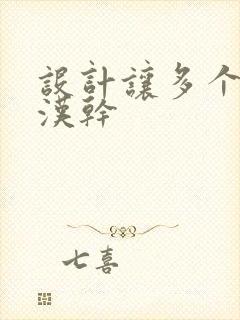 設計讓多个
漢幹
七喜